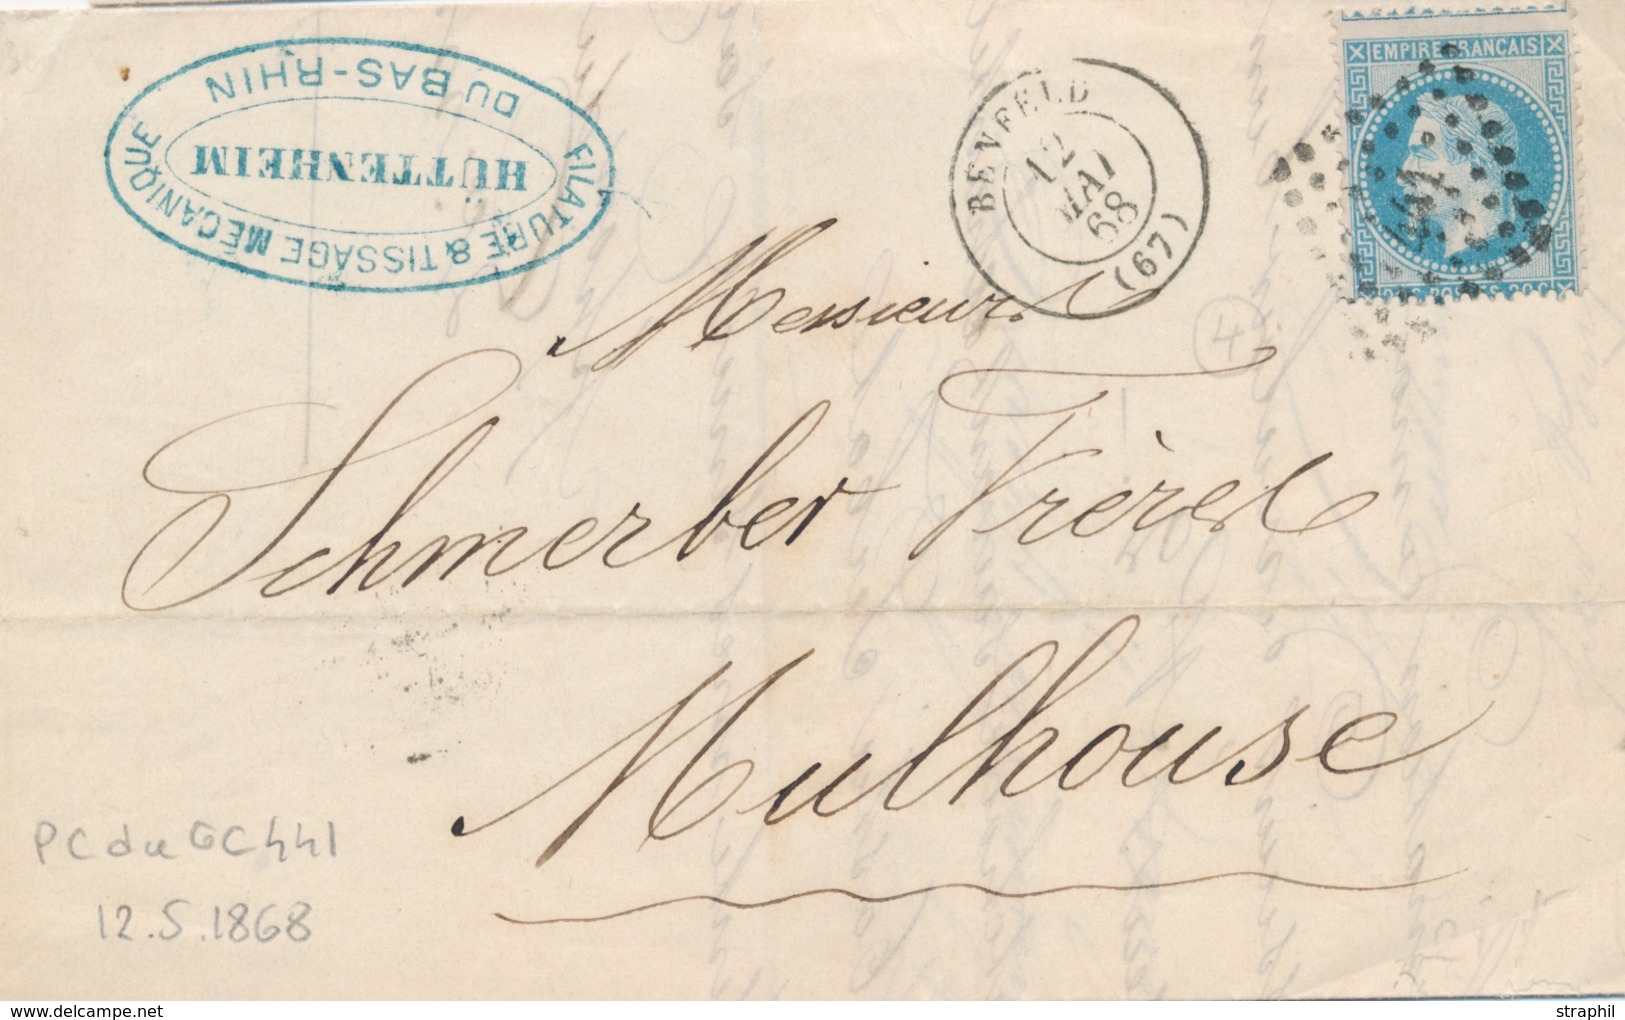 FILATURE & TISSAGE MÉCANIQUE
HÜTTENHEIM
DU BAS-RHIN
BENFELD
12
MAI
68
(67)
EMPIRE FRANCAIS
441
4
Messieurs
Schmerber Frères
Mulhouse
PC du GC 441
12.5.1868
www.delcampe.net
straphil